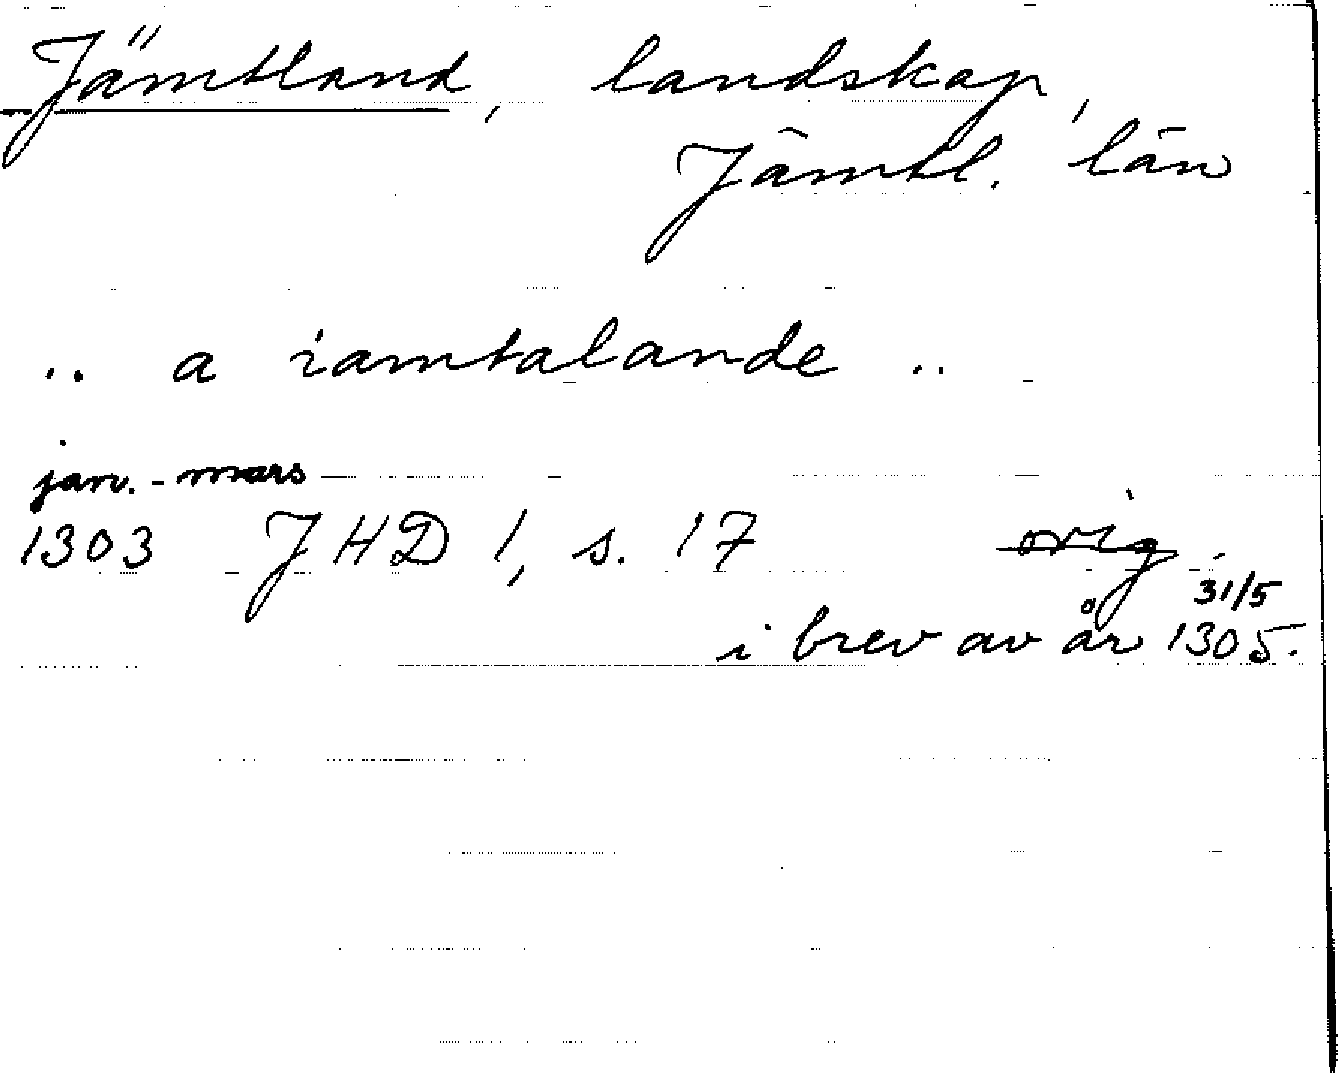 Jämtland, landskap,
Jämtl. län
.. a iamtalande ..
jan. - mars
1303 JHD 1, s. 17 orig.
31/5
i brev av år 1305.